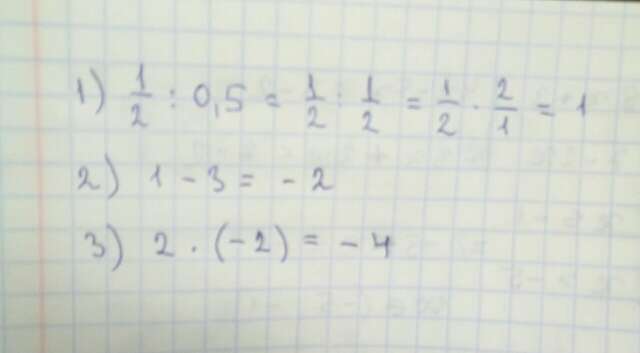 1) 1/2 : 0,5 = 1/2 : 1/2 = 1/2 · 2/1 = 1
2) 1 - 3 = - 2
3) 2 · (-2) = - 4